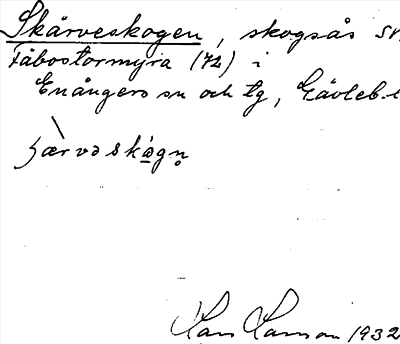 Skärveskogen, skogsås sv.
Fäbostormyra (72) i
Enångers sn och tg, Gävleb. l
ʒær və skȧgn̥
Lars Larsson 1932